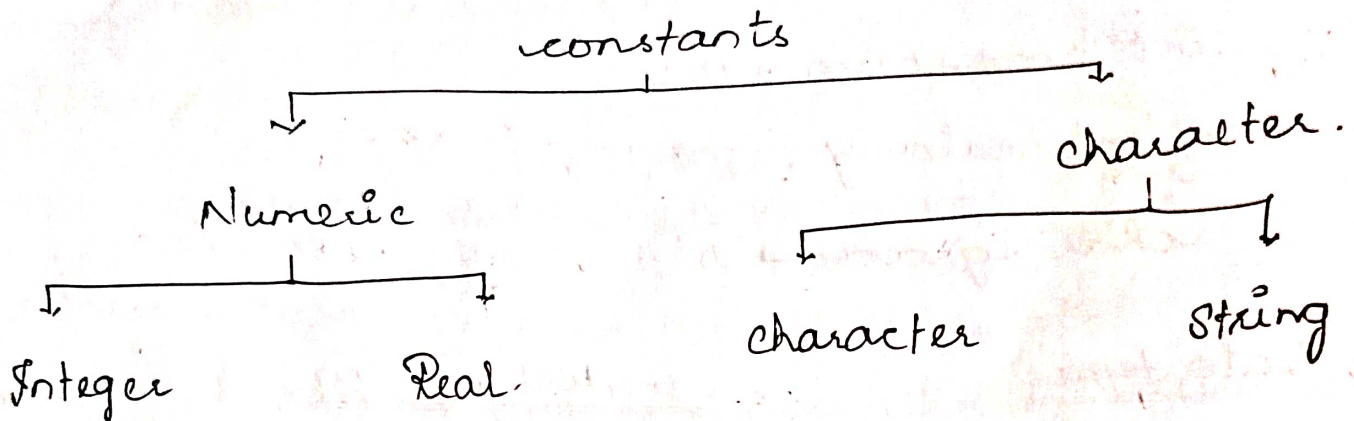 constants
Numeric
character.
Integer
Real.
character
String